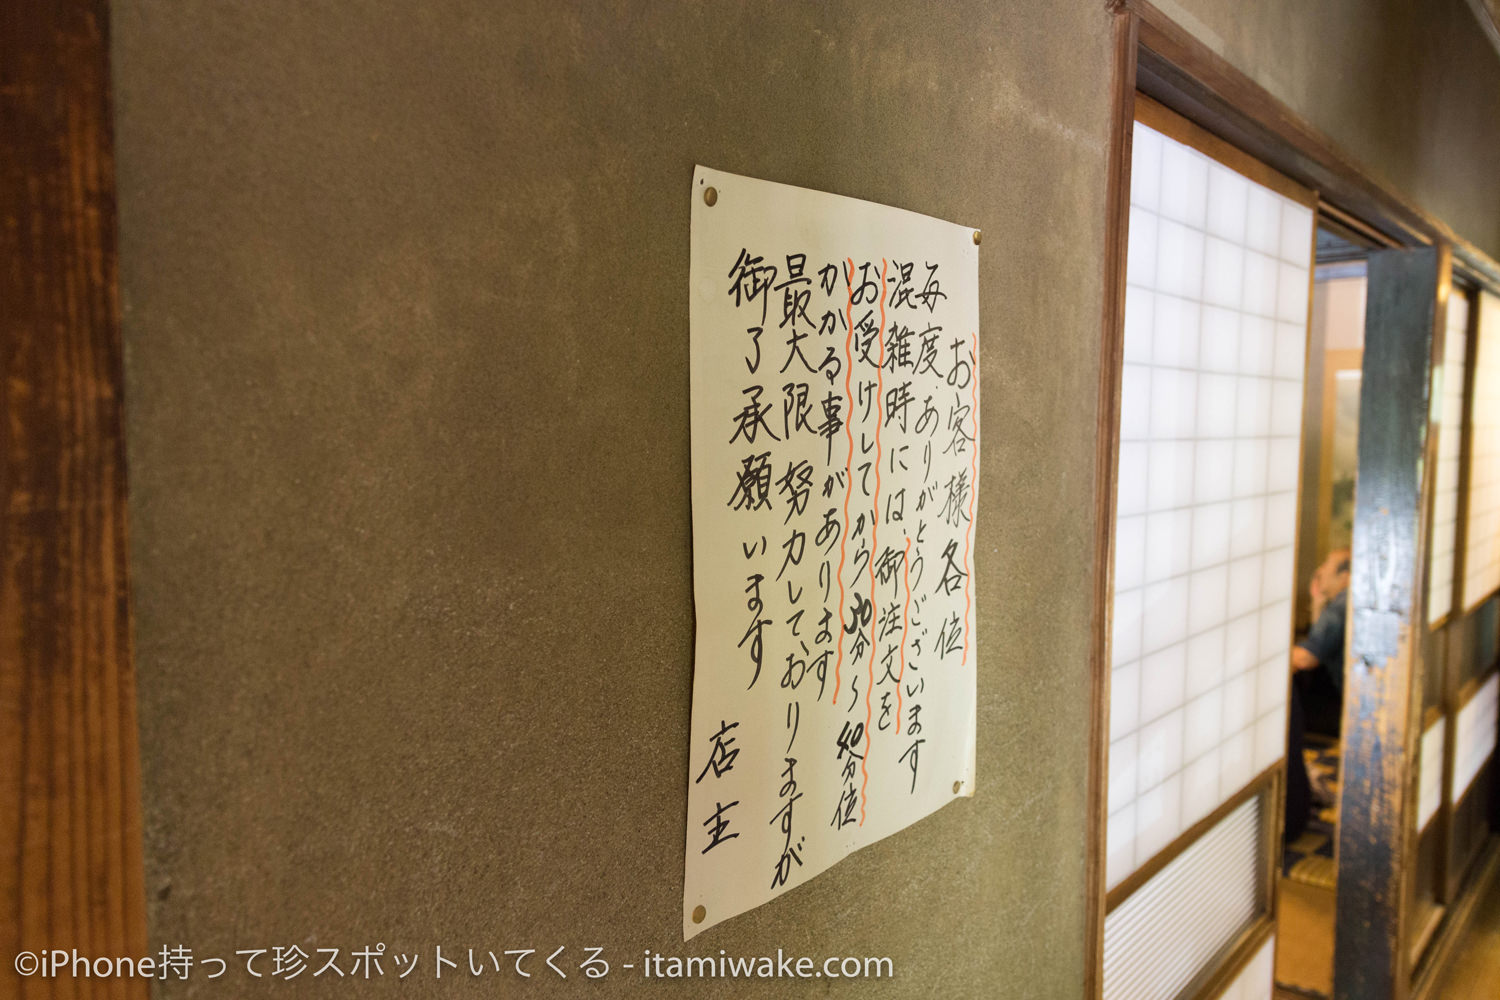 お客様各位
毎度、ありがとうございます
混雑時には、御注文を
お受けしてから30分〜40分位
かかる事があります
最大限努力しておりますが
御了承願います
店主
©iPhone持って珍スポットいてくる - itamiwake.com